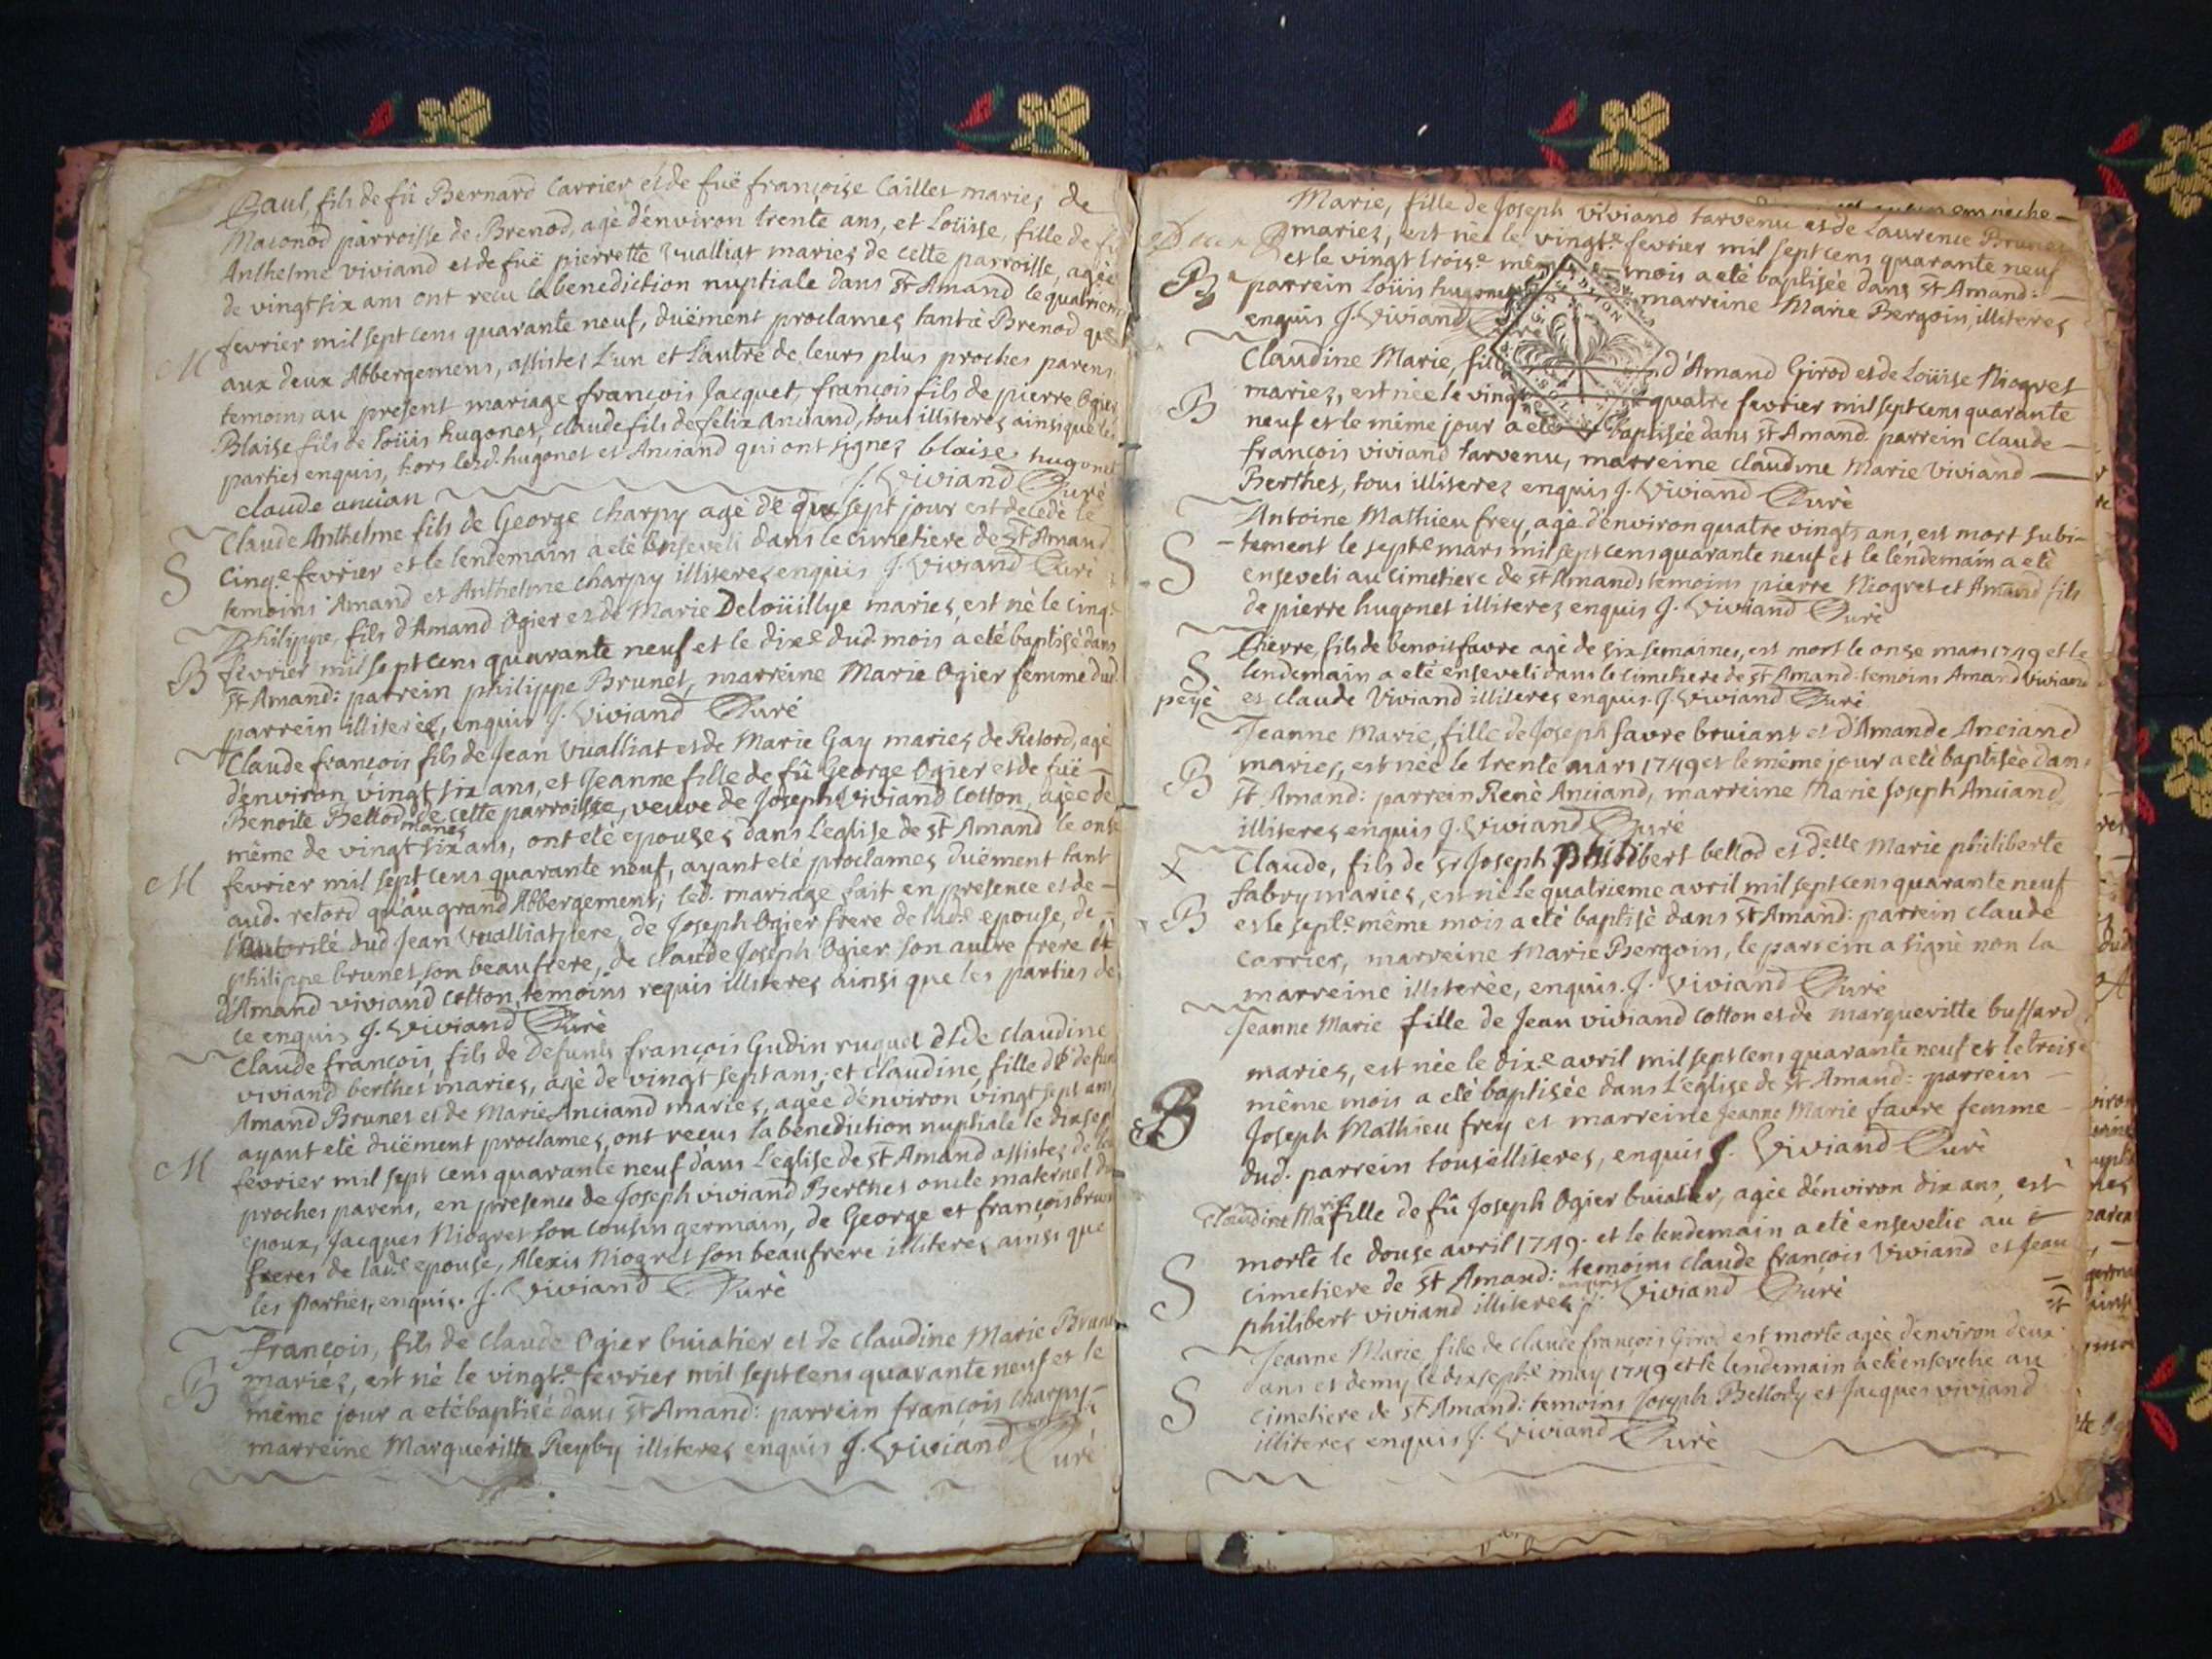 Paul, fils de fû Bernard Carrier et de fuë françoise Caillet mariez de
Maconod parroisse de Brenod, agè d'environ trente ans, et Loüise, fille de fû
Anthelme viviand et de fuë pierrette Vualliat mariez de cette parroisse, agée
de vingt six ans ont recu la benediction nuptiale dans St Amand le quatrieme
fevrier mil sept cens quarante neuf, duëment proclamez tant à Brenod que
M
aux deux Abbergemens, assistez l'un et l'autre de leurs plus proches parens
temoins au present mariage françois Jacquet, françois fils de pierre Ogier
Blaise fils de Loüis hugonet, claude fils de felix Anciand, tous illiterez ainsi que les
parties enquis, hors lesd. hugonet et Anciand qui ont signez blaise hugonet
claude ancian J. Viviand Curé
Claude Anthelme fils de George charpy agè de sept jour est decedè le
S
cinq.e fevrier et le lendemain a etè enseveli dans le cimetiere de St Amand
temoins Amand et Anthelme charpy illiterez enquis J. Viviand Curè
Philippe, fils d'Amand Ogier et de Marie Deloüillye mariez, est nè le cinq.e
B
fevrier mil sept cens quarante neuf et le dix.e dud. mois a etè baptisè dans
St Amand: parrein philippe Brunet, marreine Marie Ogier femme dud.
parrein illiterez, enquis J. Viviand Curé
Claude françois fils de Jean Vualliat et de Marie Gay mariez de Retord, agè
d'environ vingt six ans, et Jeanne fille de fû George Ogier et de fuë
Benoite Bellod mariez de cette parroisse, veuve de Joseph Viviand Cotton, agée de
même de vingt six ans, ont etè epousez dans l'eglise de St Amand le onze
M
fevrier mil sept cens quarante neuf, ayant etè proclamez duëment tant
aud. retord qu'au grand Abbergement; led. mariage fait en presence et de
l'autorité dud Jean Vualliat pere, de Joseph Ogier frere de lad.e epouse, de
philippe brunet son beaufrere, de claude Joseph Ogier son autre frere et
d'Amand viviand cotton, temoins requis illiterez ainsi que les parties de
ce enquis J. Viviand Curè
Claude françois, fils de defunts françois Gudin et de claudine
viviand berthet mariez, agè de vingt sept ans, et claudine, fille de defunt
Amand Brunet et de Marie Anciand mariez, agée d'environ vingt sept ans
ayant etè duëment proclamez, ont recus la benediction nuptiale le dix sept
M
fevrier mil sept cens quarante neuf dans l'eglise de St Amand assistez de leurs
proches parens, en presence de Joseph viviand Berthet oncle maternel du
epoux, Jacques Niogret son cousin germain, de George et françois brunet
freres de lad.e epouse, Alexis Niogret son beaufrere illiterez ainsi que
les parties, enquis. J. Viviand Curè
François, fils de Claude Ogier buiatier et de claudine Marie Brunet
B
mariez, est nè le vingt.e fevrier mil sept cens quarante neuf et le
même jour a etè baptisé dans St Amand: parrein françois charpy
marreine Margueritte Reyby illiterez enquis J. Viviand Curé
Marie, fille de Joseph viviand tarvenu et de Laurence Brunet
mariez, est née le vingt.e fevrier mil sept cens quarante neuf
et le vingt trois.e même mois a etè baptisée dans St Amand:
B
parrein Loüis hugonet marreine Marie Bergoin, illiterez
enquis J. Viviand
Claudine Marie, fille d'Amand Girod et de Loüise Niogret
B
mariez, est née le vingt quatre fevrier mil sept cens quarante
neuf et le même jour a etè baptisée dans St Amand parrein Claude
françois viviand tarvenu, marreine claudine Marie Viviand
Berthet, tous illiterez enquis J. Viviand Curè
Antoine Mathieu frey, agè d'environ quatre vingts ans, est mort subi-
S
tement le sept.e mars mil sept cens quarante neuf et le lendemain a etè
enseveli au cimetiere de St Amand: temoins pierre Niogret et Amand fils
de pierre hugonet illiterez enquis J. Viviand Curè
Pierre, fils de benoit favre agè de six semaines, est mort le onze mars 1749 et le
S
lendemain a etè enseveli dans le cimetiere de St Amand temoins Amand Viviand
peyè
et claude Viviand illiterez enquis. J. Viviand Curé
Jeanne Marie, fille de Joseph favre bruiant et d'Amande Anciand
B
mariez, est née le trente mars 1749 et le même jour a etè baptisée dans
St Amand: parrein Renè Anciand, marreine Marie Joseph Anciand
illiterez enquis J. Viviand Curè
X
Claude, fils de Sr Joseph Philibert bellod et d.elle Marie philiberte
fabry mariez, est nè le quatrieme avril mil sept cens quarante neuf
B
et le sept.e même mois a etè baptisè dans St Amand: parrein claude
carrier, marreine Marie Bergoin, le parrein a signè non la
marreine illiterèe, enquis. J. Viviand Curè
Jeanne Marie fille de Jean viviand cotton et de margueritte bussard
mariez, est née le dix.e avril mil sept cens quarante neuf et le treize
B
même mois a etè baptisée dans l'eglise de St Amand: parrein
Joseph Mathieu frey et marreine Jeanne Marie favre femme
dud. parrein tous illiterez, enquis J. Viviand Curè
Claudine Marie fille de fû Joseph Ogier buiatier, agée d'environ dix ans, est
morte le douze avril 1749. et le lendemain a etè ensevelie au
S
cimetiere de St Amand: temoins claude françois Viviand et Jean
philibert viviand illiterez enquis J. Viviand Curè
Jeanne Marie fille de claude françois Girod est morte agée d'environ deux
ans et demy le dix sept.e may 1749 et le lendemain a etè ensevelie au
S
cimetiere de St Amand: temoins Joseph Bellody et Jacques viviand
illiterez enquis J. Viviand Curè